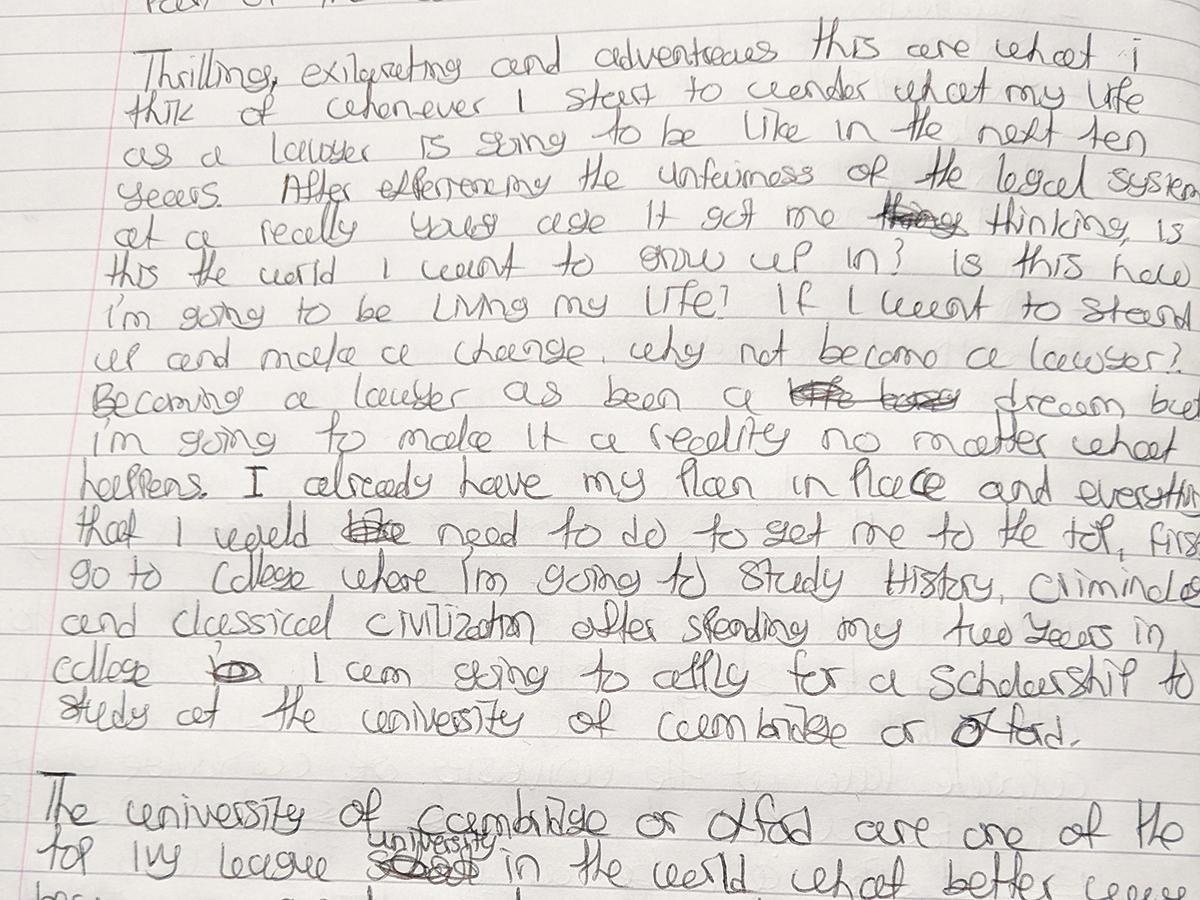 Thrilling, exilarating and adventreaus this are what i
thik of whenever I start to wender what my life
as a lawyer is going to be like in the next ten
years. After experrencing the unfairness of the legal system
at a really young age it got me thinking, is
this the world I want to grow up in? is this how
i'm going to be living my life? If I want to stand
up and make a change. why not become a lawyer?
Becoming a lawyer as been a dream but
i'm going to make it a reality no matter what
happens. I already have my plan in place and everythin
that I would need to do to get me to the top, firs
go to college where I'm going to study History, Criminolo
and classical civilization after spending my two years in
college I am going to apply for a scholarship to
study at the university of cambridge or oxford.
The university of cambridge or oxford are one of the
top ivy league university in the world what better